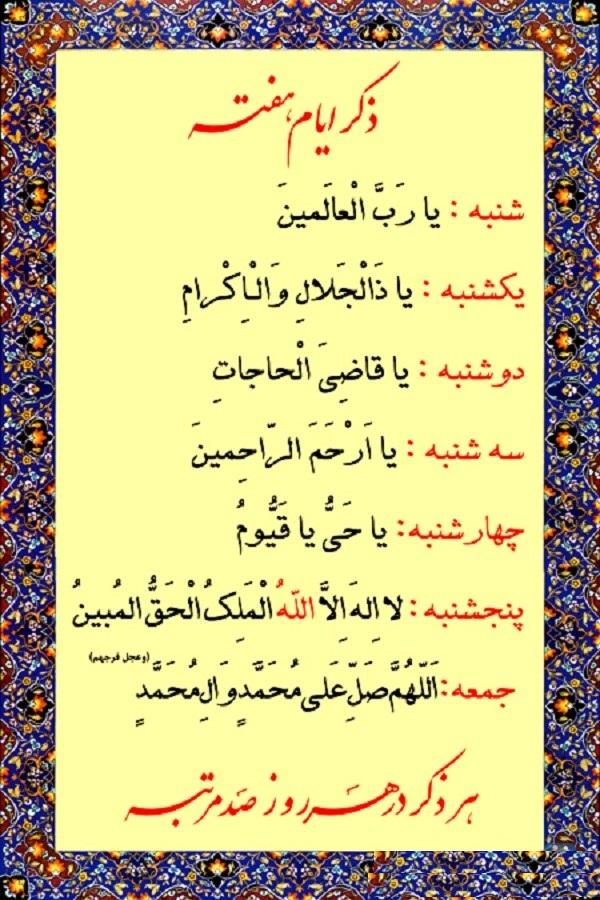 ذکر ایام هفته
شنبه : یا رَبَّ الْعالَمینَ
یکشنبه : یا ذَالْجَلالِ وَالْاِکْرامِ
دوشنبه : یا قاضِیَ الْحاجاتِ
سه شنبه : یا اَرْحَمَ الرّاحِمینَ
چهارشنبه: یا حَیُّ یا قَیُّومُ
پنجشنبه: لا اِلهَ اِلاَّ اللّهُ الْمَلِکُ الْحَقُّ المُبینُ
جمعه: اَللّهُمَّ صَلِّ عَلی مُحَمَّدٍ وَ الِ مُحَمَّدٍ
(وعجل فرجهم)
هر ذکر در هر روز صد مرتبه